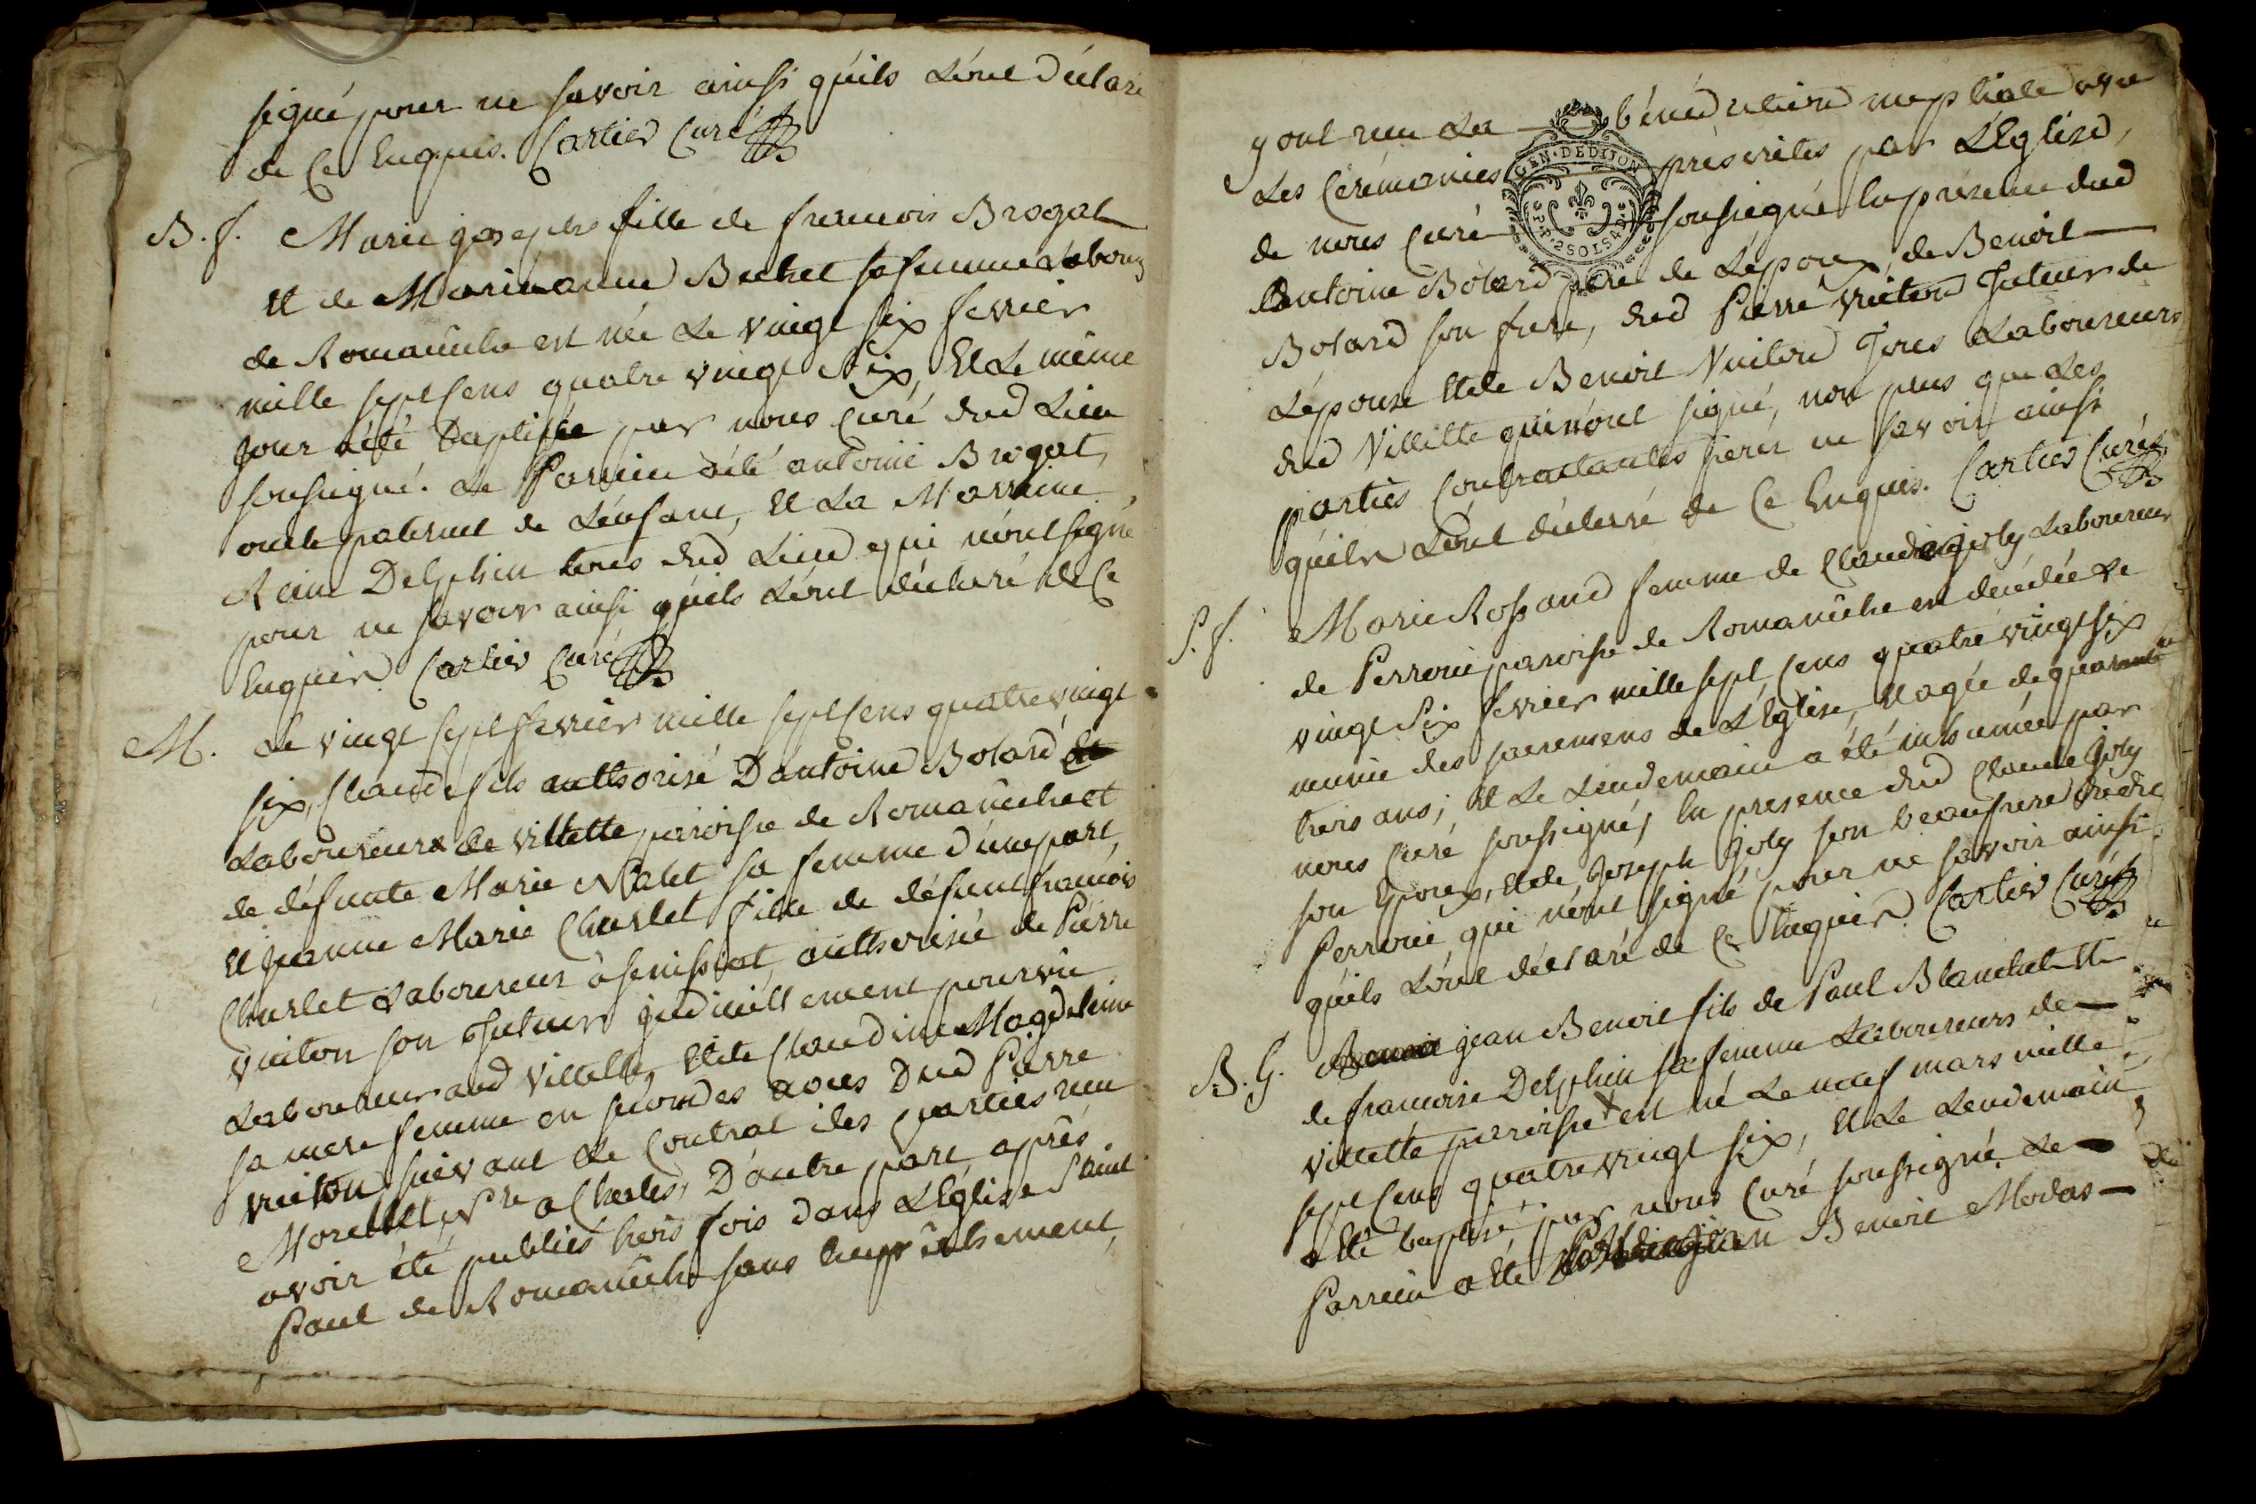 signé pour ne savoir ainsi qu'ils L'ont déclaré
de Ce Enquis. Cartier Curé
B. f. Marie joseph fille de francois Brogat
Et de Marieanne Bechet sa femme Labour
de Romanêche est née Le vingt six fevrier
mille sept Cens quatre vingt Six, Et Le même
jour a été baptisée par nous Curé dud Lieu
soussigné. Le Parrein a été antoine Brogat,
oncle paternel de L'enfant, Et La Marreine
Reine Delphin tous dud Lieu qui n'ont signé
pour ne savoir ainsi qu'ils L'ont déclaré de Ce
Enquis. Cartier Curé
M. Le vingt sept fevrier mille sept Cens quatre vingt
six, Claude fils authorisé D'antoine Bolard
Laboureur de villette paroisse de Romanêche et
de défunte Marie Nalet sa femme d'une part,
Et jeanne Marie Charlet fille de défunt francois
Charlet Laboureur à senissiat, authorisée de Pierre
vuiton son Tuteur judiciellement pourvu
Laboureur aud villette, Et de Claudine Magdeleine
sa mere femme en secondes noces Dud Pierre
vuiton suivant Le Contrat des parties reçu
Morellet, Nre a Chales, D'autre part, après
avoir été publiés trois fois dans L'Eglise Saint
Paul de Romanêche sans Empêchement,
y ont reçu La bénédiction nuptiale avec
Les Cérémonies prescrites par L'Eglise,
de nous Curé soussigné En présence dud
antoine Bolard pere de L'époux, de Benoit
Bolard son frere, dud Pierre vuiton Tuteur de
L'épouse Et de Benoit Vuiton Tous Laboureurs
dud Villette qui n'ont signé, non plus que Les
parties Contractantes pour ne savoir ainsi
qu'ils L'ont déclaré de Ce Enquis. Cartier Curé
S. f. Marie Rossand femme de Claude joly Laboureur
de Perroué paroisse de Romanêche est décédée Le
vingt Six fevrier mille sept Cens quatre vingt six
munie des sacremens de L'Eglise, Et agée de quarante
trois ans; Et Le Lendemain a été inhumée par
nous Curé soussigné, En presence dud Claude Joly
son Epoux, Et de joseph Joly son beaufrere dudit
Perroué qui n'ont signé pour ne savoir ainsi
qu'ils L'ont déclaré de Ce Enquis. Cartier Curé
B. G. jean Benoit fils de Paul Blanchet Et
de francoise Delphin sa femme Laboureurs de
villette paroisse est né Le neuf mars mille
sept Cens quatre vingt six, Et Le Lendemain
a été baptisé par nous Curé soussigné. Le
Parrein a été jean Benoit Modas
GEN. DE DIJON